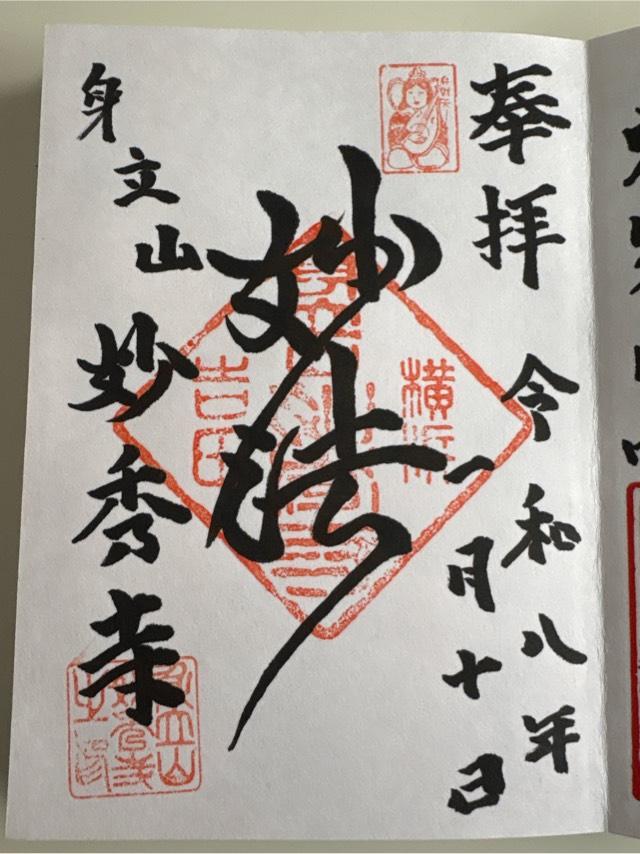 奉拝
令和八年
一月十日
妙法
横浜
吉田
身立山
妙秀寺